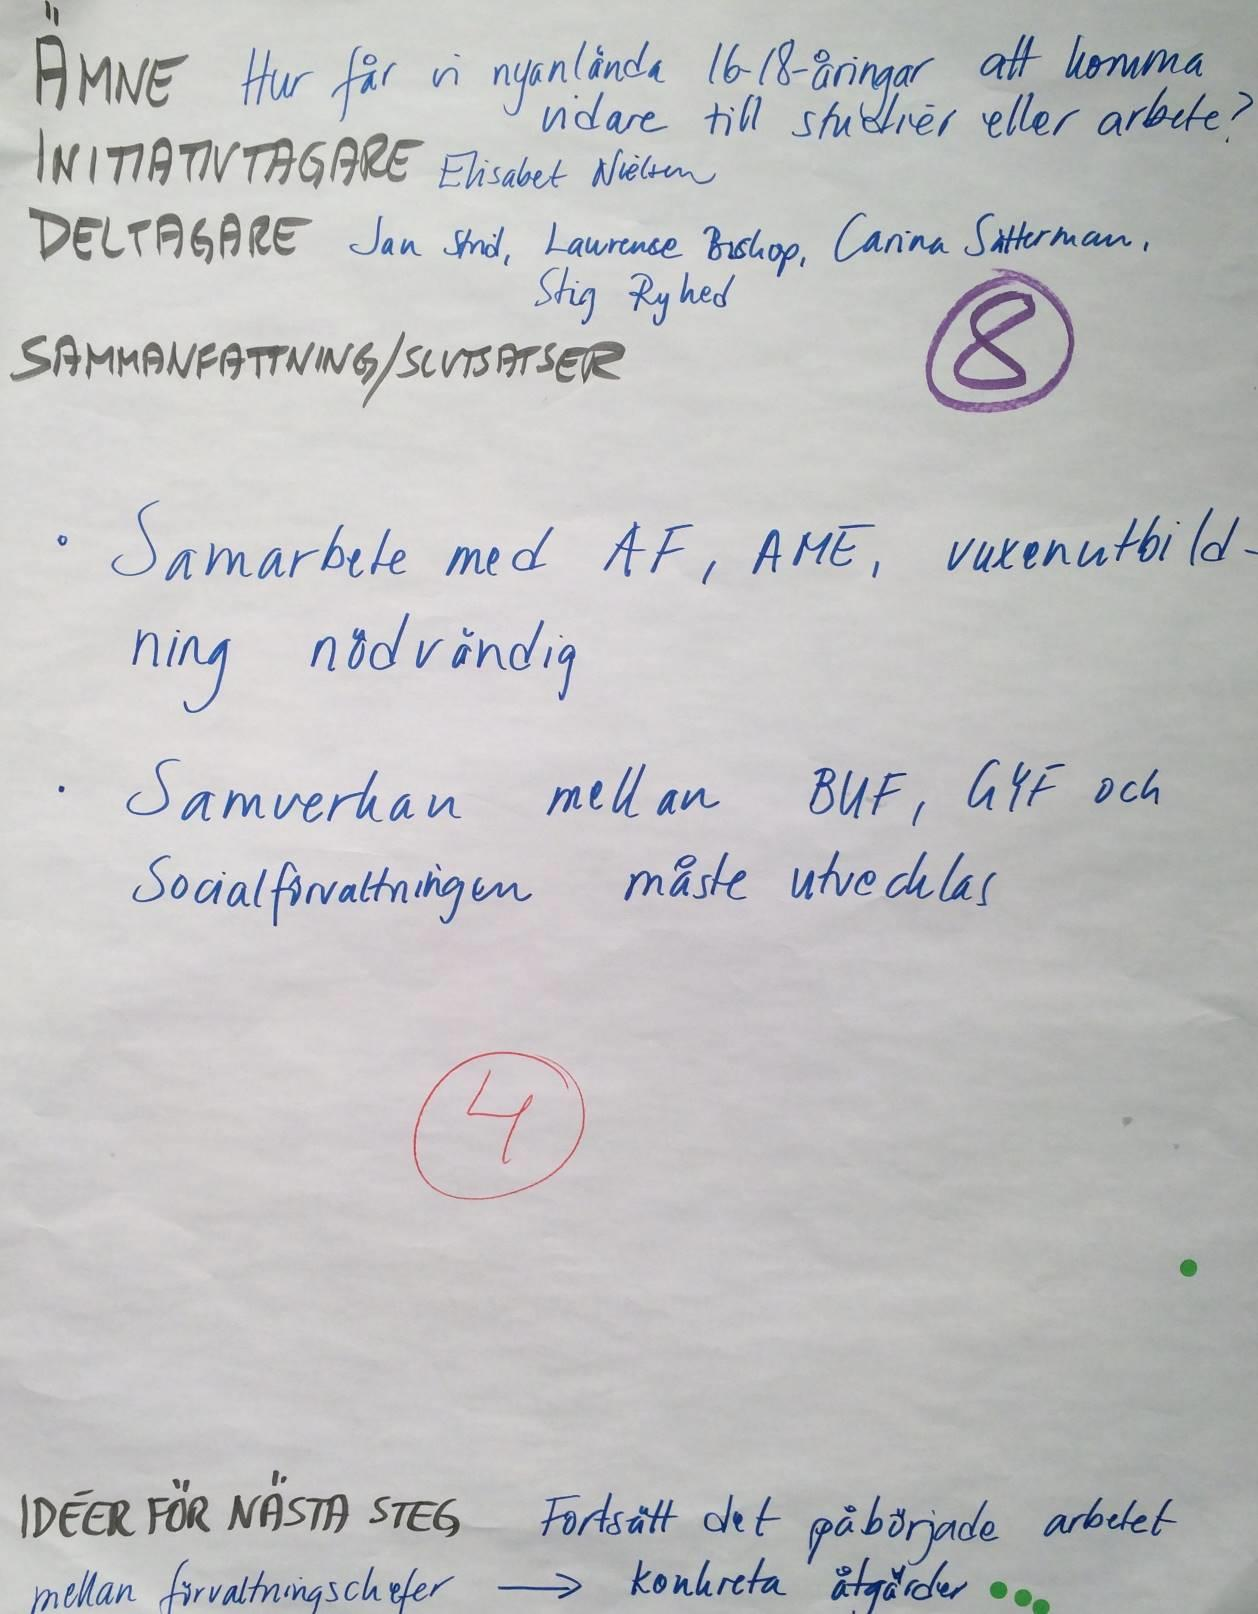 ÄMNE Hur får vi nyanlända 16-18-åringar att komma
vidare till studier eller arbete?
INITIATIVTAGARE Elisabet Nielsen
DELTAGARE Jan Strid, Lawrense Bishop, Carina Sätterman,
Stig Ryhed
8
SAMMANFATTNING/SLUTSATSER
• Samarbete med AF, AME, vuxenutbild-
ning nödvändig
• Samverkan mellan BUF, GYF och
Socialförvaltningen måste utvecklas
4
IDÉER FÖR NÄSTA STEG Fortsätt det påbörjade arbetet
mellan förvaltningschefer → konkreta åtgärder